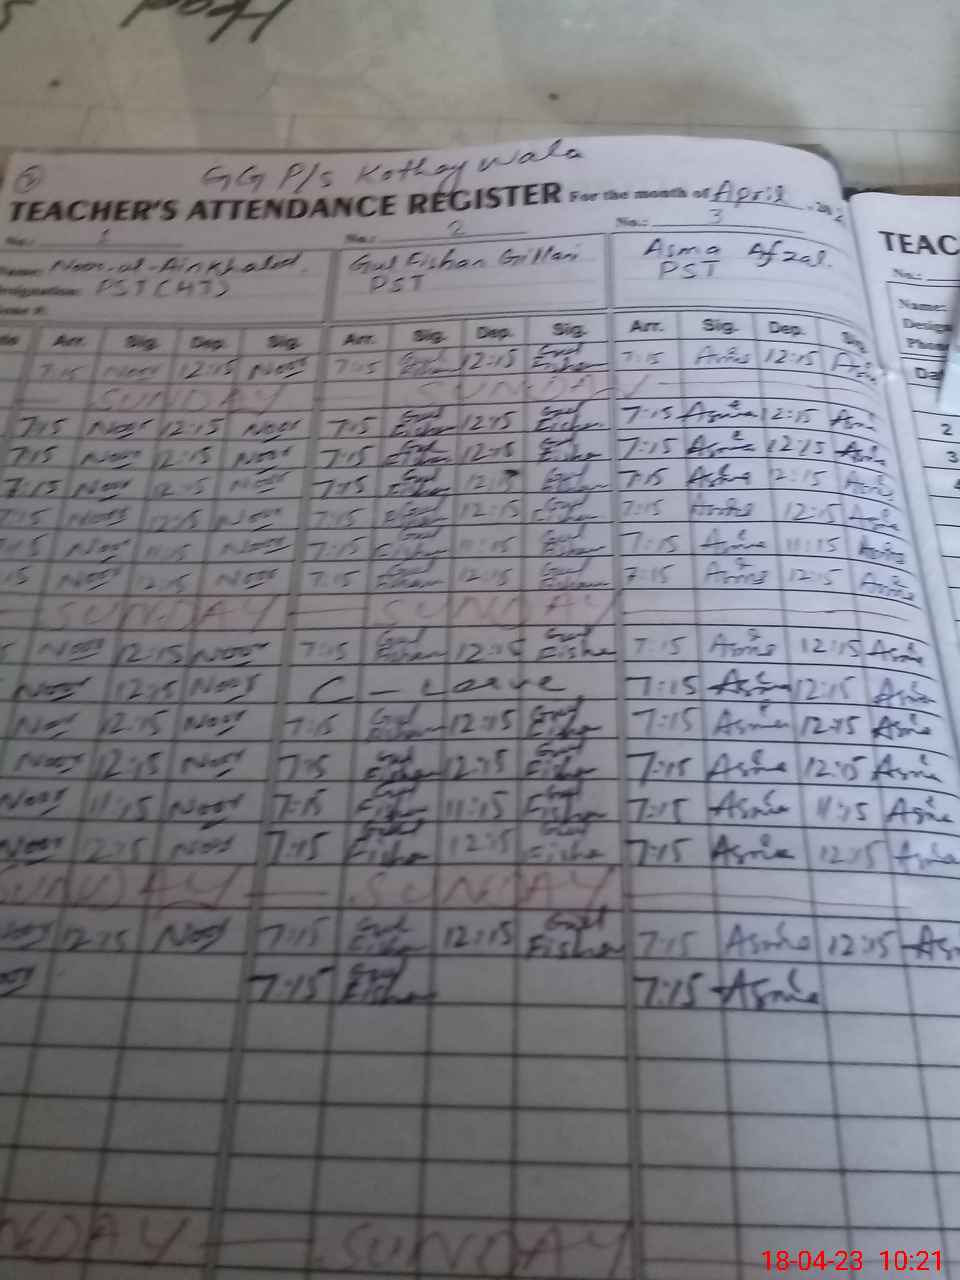 GG P/s Kothay wala
TEACHER'S ATTENDANCE REGISTER For the month of April
No.: 1 No.: 2 No.: 3
Noor-ul-Ain Khalid Gul Fishan Gillani Asma Afzal.
Designation: PST (HT) PST PST
Arr. Sig. Dep. Sig. Arr. Sig. Dep. Sig. Arr. Sig. Dep. Sig.
7:15 Noor 12:15 Noor 7:15 Gul 12:15 Gul Eishan 7:15 Asma 12:15 Asma
SUNDAY SUNDAY
7:15 Noor 12:15 Noor 7:15 Gul Eishan 12:15 Gul Eishan 7:15 Asma 12:15 Asma
7:15 Noor 12:15 Noor 7:15 Gul Eishan 12:15 Gul Eishan 7:15 Asma 12:15 Asma
7:15 Noor 12:15 Noor 7:15 Gul Eishan Gul Eishan 7:15 Asma 12:15 Asma
7:15 Noor 12:15 Noor 7:15 Gul Eishan 12:15 Gul Eishan 7:15 Asma 12:15 Asma
Noor 11:15 Noor 7:15 Gul Eishan 11:15 Gul Eishan 7:15 Asma 11:15 Asma
:15 Noor 12:15 Noor 7:15 Gul Eishan 12:15 Gul Eishan 7:15 Asma 12:15 Asma
SUNDAY SUNDAY
Noor 12:15 Noor 7:15 Gul Eishan 12:15 Gul Eisha 7:15 Asma 12:15 Asma
Noor 12:15 Noor C - Leave 7:15 Asma 12:15 Asma
Noor 12:15 Noor 7:15 Gul Eishan 12:15 Gul Eishan 7:15 Asma 12:15 Asma
Noor 12:15 Noor 7:15 Gul Eishan 12:15 Gul Eisha 7:15 Asma 12:15 Asma
Noor 11:15 Noor 7:15 Gul Eisha 11:15 Gul Eisha 7:15 Asma 11:15 Asma
Noor 12:15 Noor 7:15 Gul Eisha 12:15 Gul Eisha 7:15 Asma 12:15 Asma
SUNDAY SUNDAY
Noor 12:15 Noor 7:15 Gul Eisha 12:15 Gul Eisha 7:15 Asma 12:15 As
7:15 Gul Eishan 7:15 Asma
NDAY SUNDAY
TEAC
No.:
Name:
Design
Phone
Dat
2
3
4
18-04-23 10:21